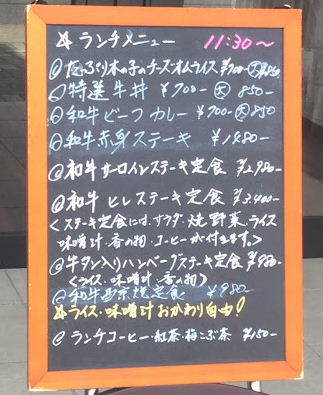 ☆ ランチメニュー 11:30〜
◎たっぷり木の子のチーズオムライス ¥700- 大¥850
◎特選牛丼 ¥700- 大 850-
◎和牛ビーフカレー ¥700- 大 850
◎和牛赤身ステーキ ¥1480-
◎和牛サーロインステーキ定食 ¥2,980-
◎和牛ヒレステーキ定食 ¥3,400-
<ステーキ定食には、サラダ・焼野菜、ライス
味噌汁・香の物・コーヒーが付きます。>
◎牛タン入りハンバーグステーキ定食 ¥980-
<ライス・味噌汁・香の物>
◎和牛 焼定食 ¥980
☆ライス・味噌汁おかわり自由!
◎ランチコーヒー・紅茶・梅こぶ茶 ¥150-